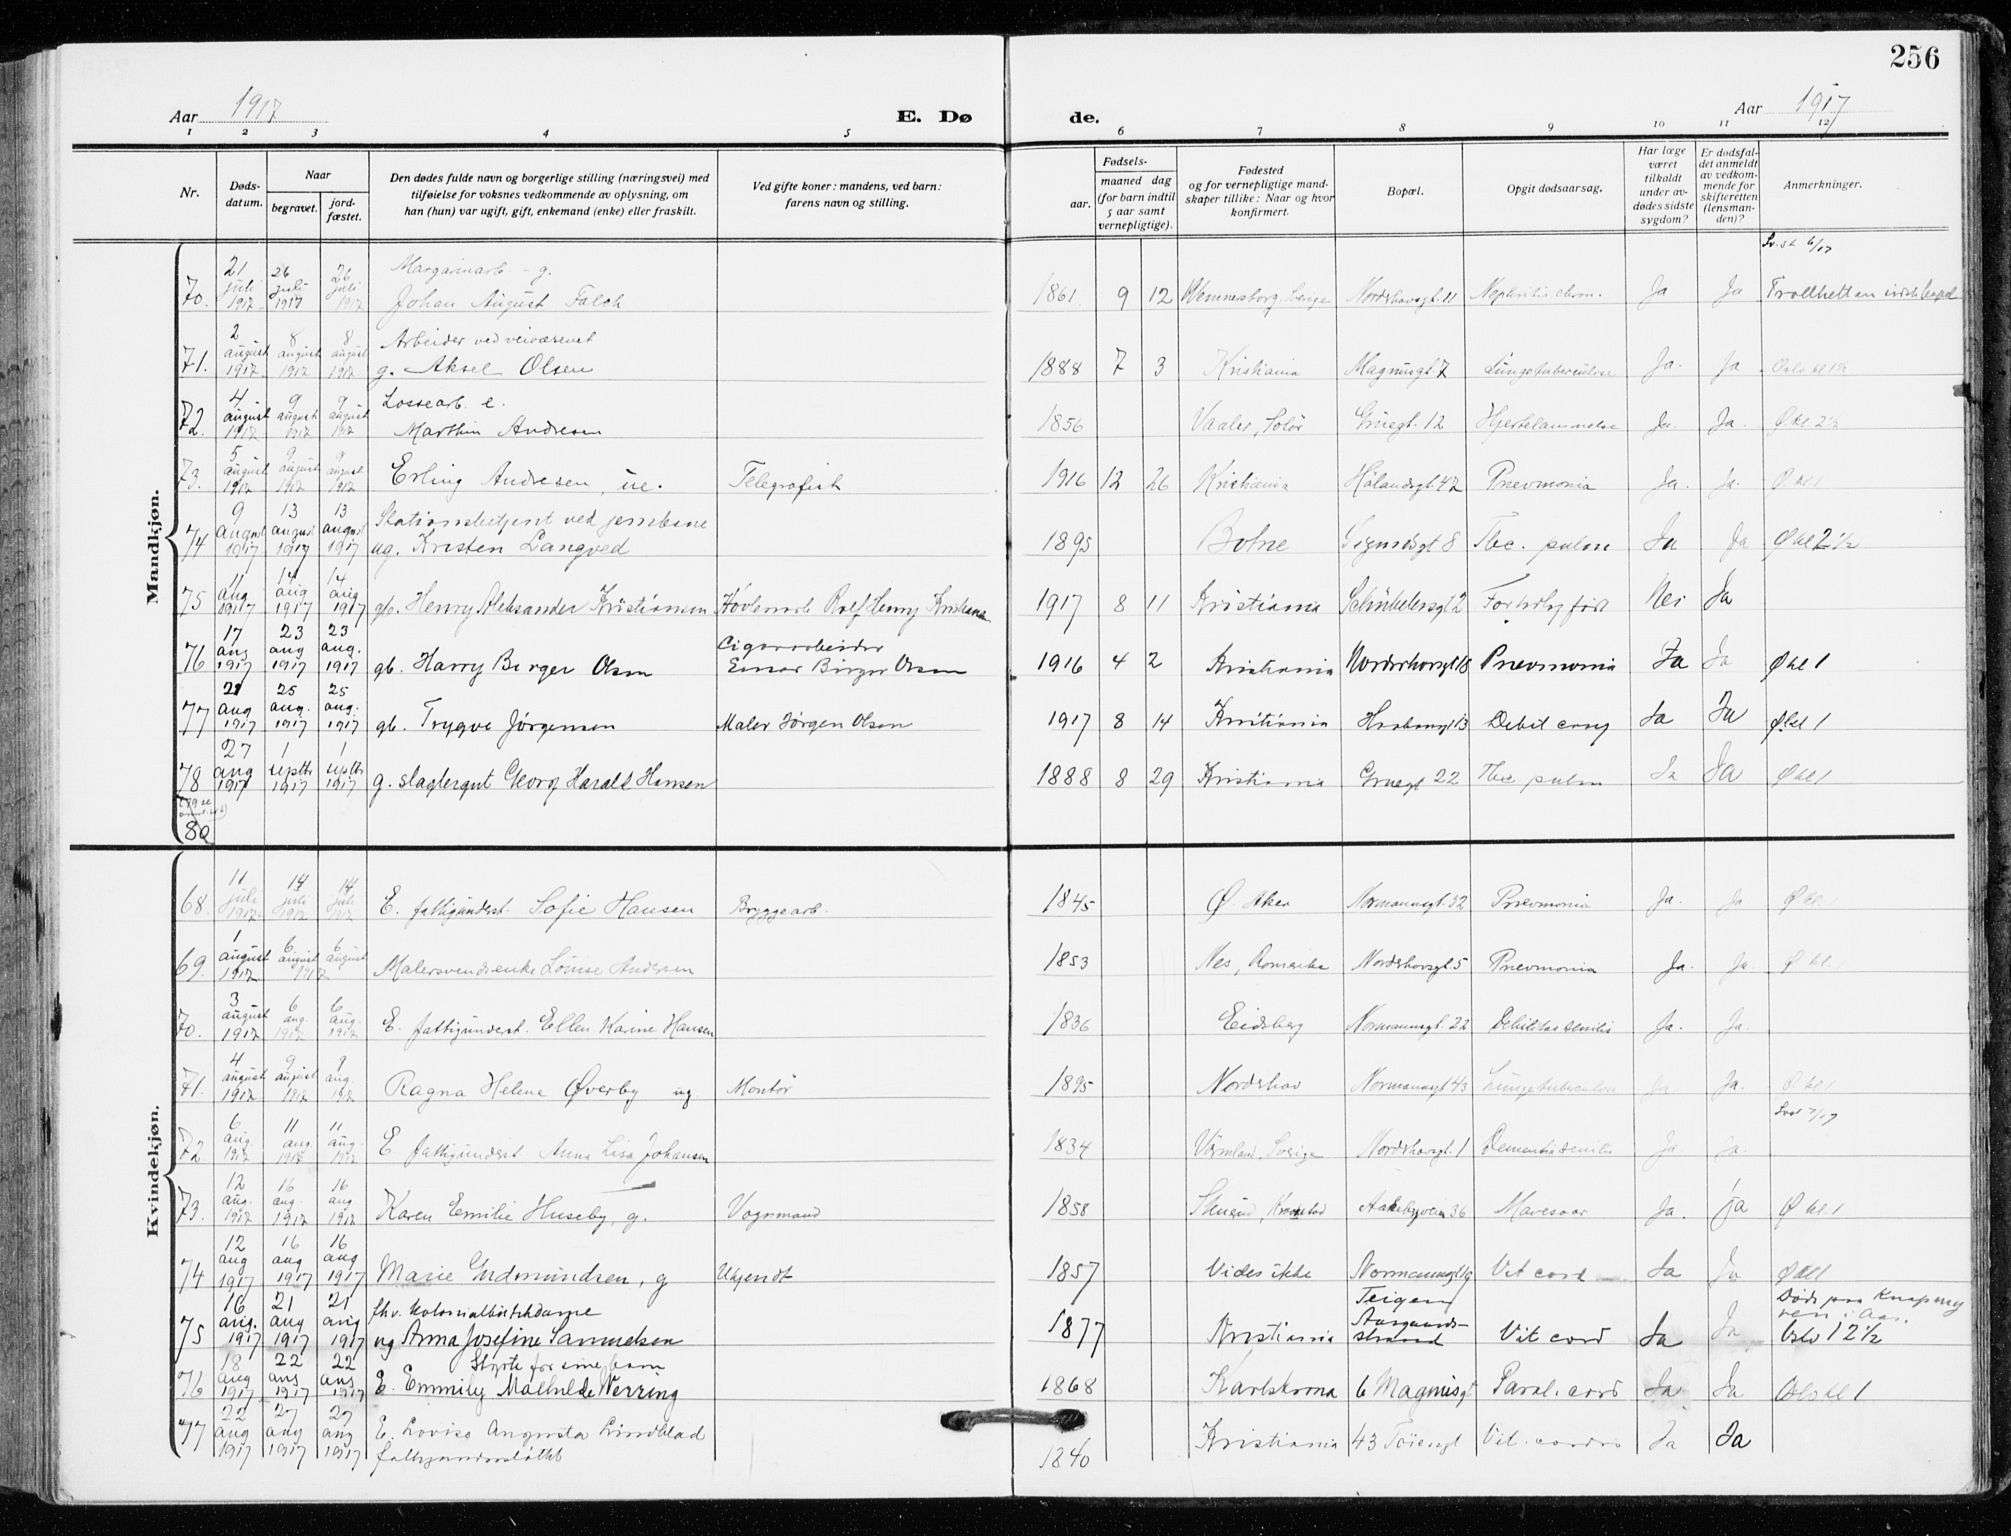 256
Aar 1917
E. Dø
de.
Aar 1917
1 2 3 4 5 6 7 8 9 10 11 12
Nr.
Dødsdatum.
Naar
begravet.
jordfæstet.
Den dødes fulde navn og borgerlige stilling (næringsvei) med
tilføielse for voksnes vedkommende av oplysning, om
han (hun) var ugift, gift, enkemand (enke) eller fraskilt.
Ved gifte koner: mandens, ved barn:
farens navn og stilling.
Fødsels-
aar.
maaned dag
(for barn indtil
5 aar samt
vernepligtige).
Fødested
og for vernepligtige mand-
skaper tillike: Naar og hvor
konfirmert.
Bopæl.
Opgit dødsaarsag.
Har læge
været
tilkaldt
under av-
dødes sidste
sygdom?
Er dødsfal-
det anmeldt
av vedkom-
mende for
skifteretten
(lensman-
den)?
Anmerkninger.
Mandkjøn.
70. 21 juli 1917 26 juli 1917 26 juli 1917 Margarinarb. - g. Johan August Falck 1861. 9 12 Wennersborg, Sverige Nordshovsgt. 11 Nephritis chron. Ja Ja Trollhettan
71. 2 august 1917 8 august 1917 8 august 1917 Arbeider ved veivæsenet g. Aksel Olsen 1888 7 3 Kristiania Magnusgt. 7 Lungetuberculose Ja. Ja Oslo kl 1½
72. 4 august 1917 9 august 1917 9 august 1917 Lossearb. e. Marthin Andresen 1856 Vaaler, Solør Gruegt. 12 Hjertelammelse Ja. Ja. Ø kl 2½
73. 5 august 1917 9 august 1917 9 august 1917 Erling Andresen, ue. Telegrafist 1916 12 26 Kristiania Hølandsgt. 42 Pnevmonia Ja. Ja. Ø kl 1
74 9 august 1917 13 august 1917 13 august 1917 Stationsbetjent ved jernbane ug. Kristen Langved 1895 Botne Sigurdsgt 8 Tbc. pulm Ja Ja Ø kl 2½
75 11 aug 1917 14 aug 1917 14 aug 1917 gb. Henry Aleksander Kristiansen Høvleriarb Rolf Henry Kristians 1917 8 11 Kristiania Schübelersgt 2 For tidlig født Nei Ja
76 17 aug 1917 23 aug 1917 23 aug. 1917 gb. Harry Berger Olsen Cigararbeider Einar Birger Olsen 1916 4 2 Kristiania Nordrehovsgt 18 Pnevmonia Ja Ja Ø kl 1
77 21 aug 1917 25 aug. 1917 25 aug. 1917 gb. Trygve Jørgensen Maler Jørgen Olsen 1917 8 14 Kristiania 13 Debil cong Ja Ja Ø kl 1
78 27 aug 1917 1 septbr 1917 1 septbr 1917 g. slagtergut Georg Harald Hansen 1888 8 29 Kristiania Gruegt 22 Tbc pulm Ja Ja Ø kl 1
80
Kvindekjøn.
68. 11 juli 1917 14 juli 1917 14 juli 1917 E. fattigunderst. Sofie Hansen Bryggearb. 1845 Ø. Aker Normannsgt. 32 Pnevmonia Ja. Ja Ø kl. 1
69. 1 august 1917 6 august 1917 6 august Malersvendsenke Louise Andersen 1853 Nes, Romerike Nordshovsgt. 5 Pnevmonia Ja. Ja. Ø kl. 1
70. 3 august 1917 6 aug. 1917 6 aug. 1917 E. fattigunderst. Ellen Karine Hansen 1836 Eidsberg Normannsgt. 22 Debilitas senilis Ja. Ja.
71. 4 august 1917 9 august 1917 9 aug. 1917 Ragna Helene Øverby ug Montør 1895 Nordshov Normannsgt 43 Lungetuberculose Ja Ja. Ø kl 1
72 6 aug. 1917 11 aug. 1917 11 aug. 1917 E fattigunderst Anna Lisa Johansen 1834 Värmland, Sverige Nordshovsgt. 1 Dementia senilis Ja Ja.
73. 12 aug. 1917 16 aug. 1917 16 aug 1917 Karen Emilie Huseby, g. Vognmand 1858 36 Mavesaar Ja. Ja Ø kl. 1
74 12 aug 1917 16 aug 1917 16 aug 1917 Marie Gudmundsen, g Ukjendt 1857 Vides ikke Normannsgt 19 Vit cord Ja Ja Ø kl 1
75 16 aug. 1917 21 aug 1917 21 aug 1917 fhv. kolonialbutikdame ug Anna Josefine Samuelsen 1877 Kristiania Teigen Aasgaardsstrand Vit cord Ja Ja Døde paa Oslo 12½
76 18 aug 1917 22 aug 1917 22 aug 1917 Styrte for sine barn E. Emmily Mathilde Nerring 1868 Karlskrona 6 Magnusgt Paral. cord Ja Ja Oslo kl 1
77 22 aug 1917 27 aug 1917 27 aug 1917 E. Lovise Augusta Lindblad fattigunderstøttet 1840 Kristiania 43 Tøiengt Vit. cordis Ja Ja